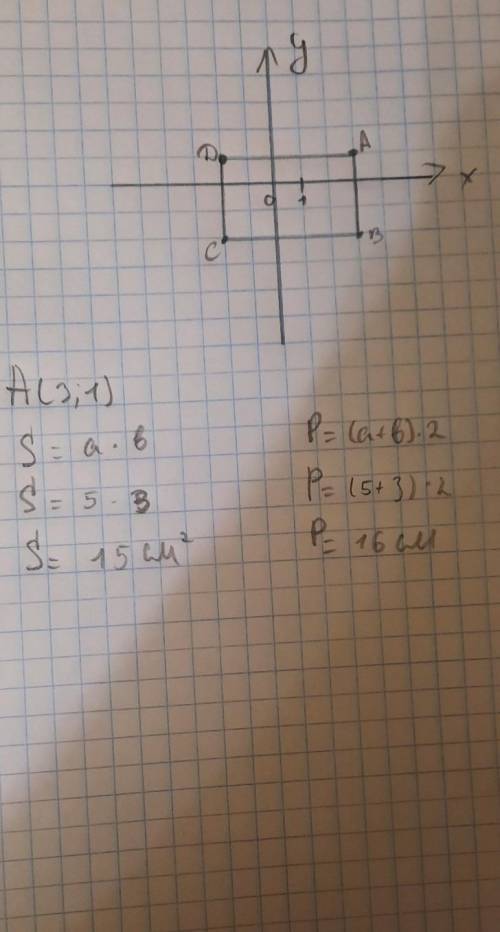 y
D A
x
0 1
C B
A(3;1)
S = a · b
P = (a+b)·2
S = 5 · 3
P = (5+3)·2
S = 15 см²
P = 16 см